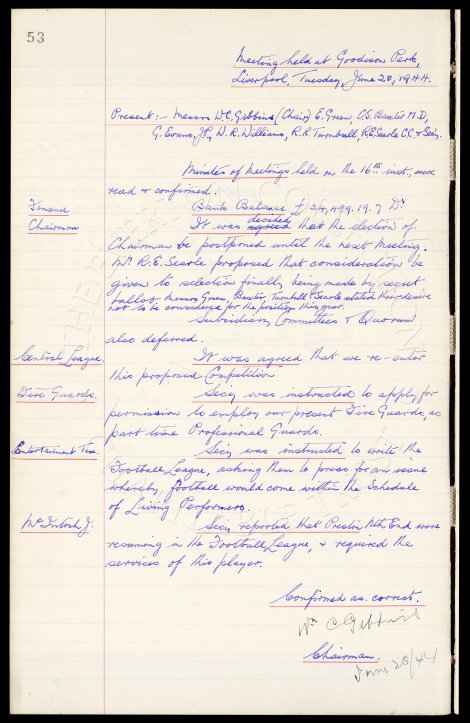 53
Meeting held at Goodison Park,
Liverpool, Tuesday, June 20, 1944.
Present:- Messrs W.C. Gibbins (Chair) E. Green, C.S. Baxter M.D.,
G. Evans, J.P., W.R. Williams, R.R. Turnbull, R.E. Searle C.C. & Secy.
Minutes of Meetings held on the 16th inst., were
read & confirmed.
Finance Bank Balance £24,489.19.7 Dr
Chairman It was agreed decided that the election of
Chairman be postponed until the next Meeting.
Mr R.E. Searle proposed that consideration be
given to selection finally being made by secret
ballot. Messrs Green, Baxter, Turnbull & Searle stated their desire
not to be considered for the position this year.
Subsidiary Committees & Quorum,
also deferred.
Central League. It was agreed that we re-enter
this proposed Competition
Fire Guards. Secy was instructed to apply for
permission to employ our present Fire Guards, as
part time Professional Guards.
Entertainment Tax. Secy was instructed to write the
Football League, asking them to press for an issue
whereby football would come within the Schedule
of Living Performers.
McIntosh J. Secy reported that Preston Nth End were
resuming in the Football League, & required the
services of this player.
Confirmed as correct.
Wm C Gibbins
Chairman.
June 28/44